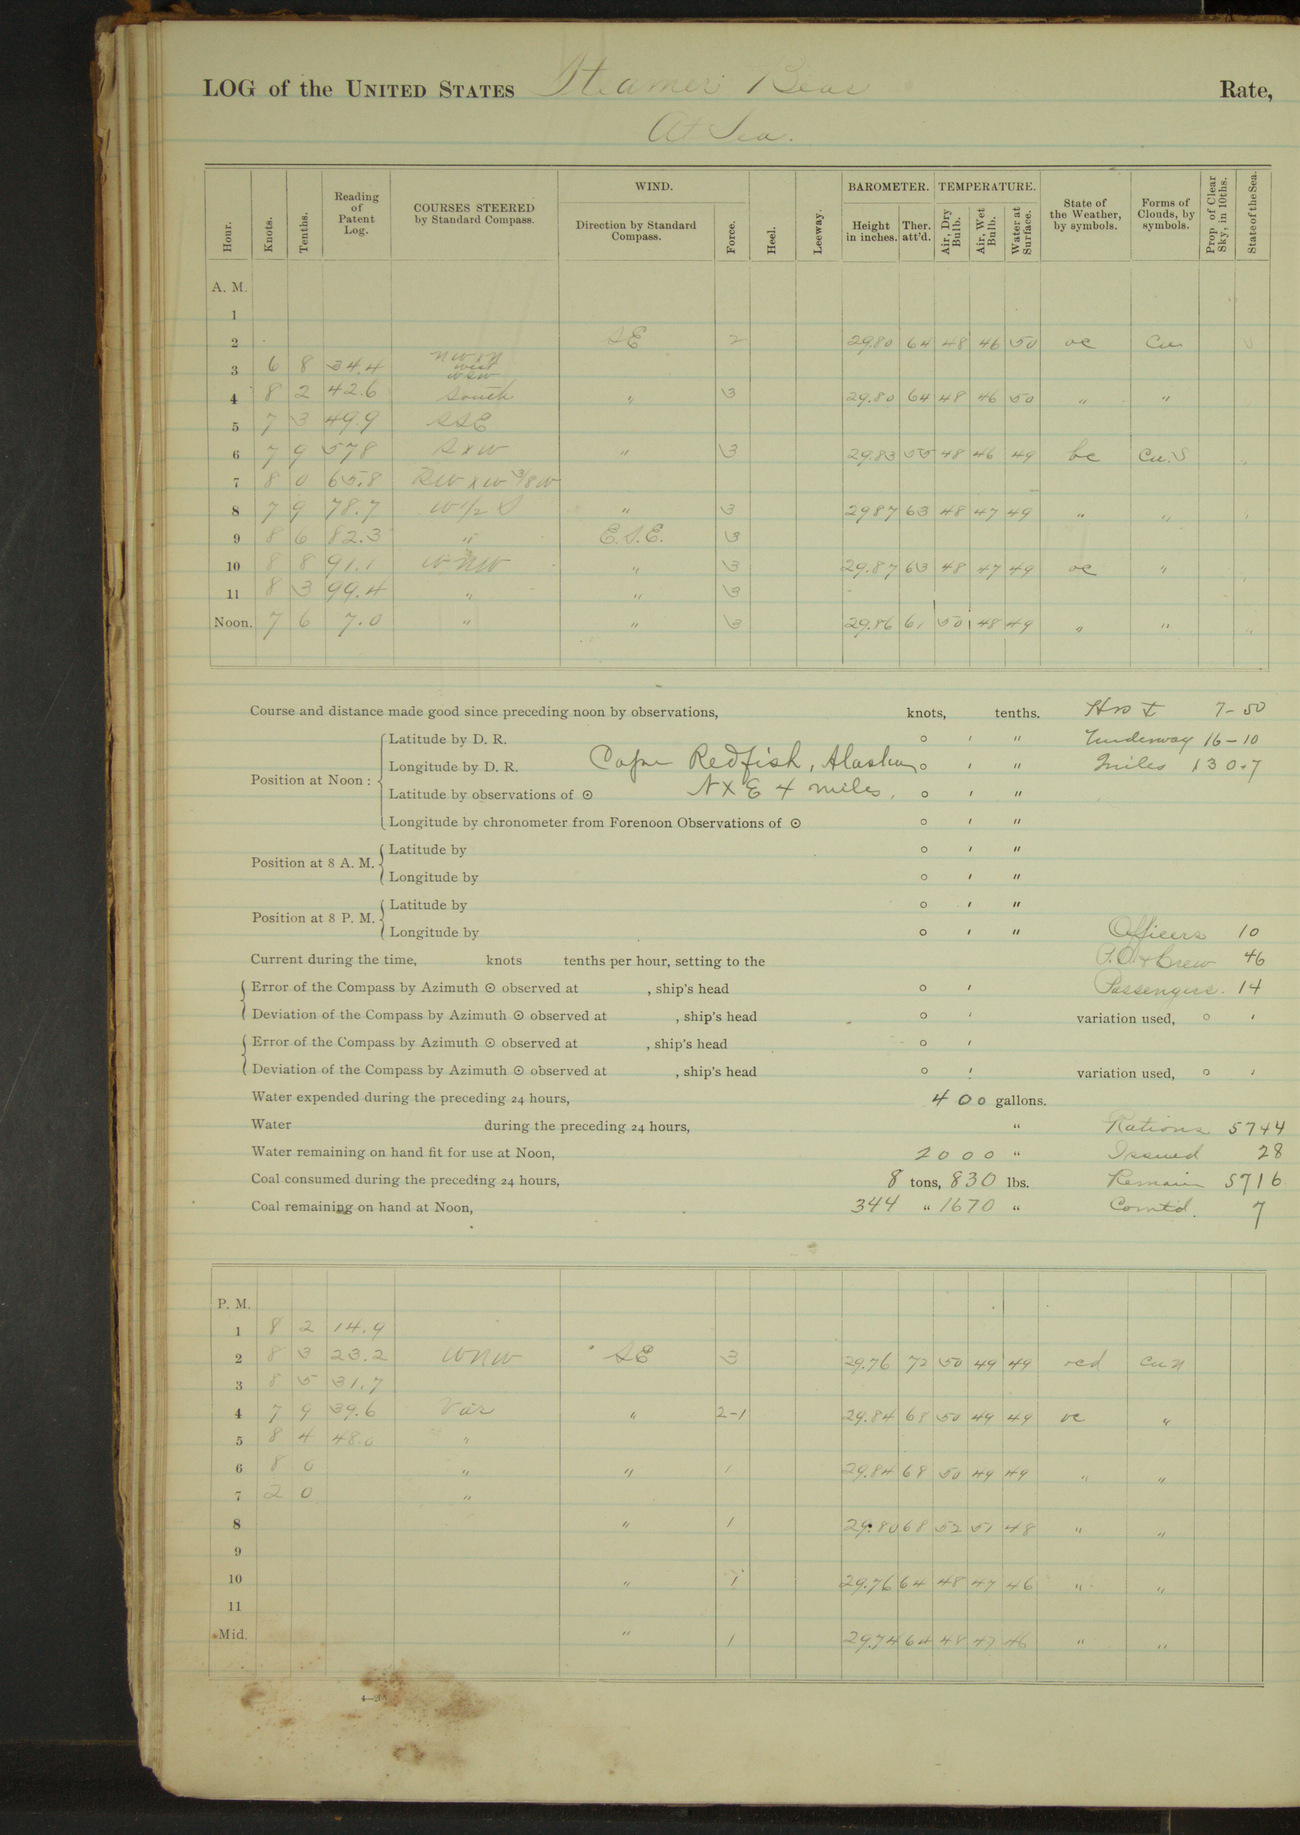 LOG of the UNITED STATES Steamer Bear Rate,
At Sea.
Hour. Knots. Tenths. Reading of Patent Log. COURSES STEERED by Standard Compass. WIND. Direction by Standard Compass. Force. Heel. Leeway. BAROMETER. Height in inches. Ther. att'd. TEMPERATURE. Air, Dry Bulb. Air, Wet Bulb. Water at Surface. State of the Weather, by symbols. Forms of Clouds, by symbols. Prop. of Clear Sky, in 10ths. State of the Sea.
A. M.
1
2 SE 2 29.80 64 48 46 50 oc Cu
3 6 8 34.4 NWxN West WSW
4 8 2 42.6 South " 3 29.80 64 48 46 50 " "
5 7 3 49.9 SSE
6 7 9 57.8 SxW " 3 29.83 55 48 46 49 bc Cu.S
7 8 0 65.8 SWxW 3/8 W
8 7 9 78.7 W 1/2 S " 3 29.87 63 48 47 49 " "
9 8 6 82.3 " E.S.E. 3
10 8 8 91.1 WNW " 3 29.87 63 48 47 49 oc "
11 8 3 99.4 " " 3
Noon. 7 6 7.0 " " 3 29.86 61 50 48 49 " "
Course and distance made good since preceding noon by observations, knots, tenths. Hrs 7-50
Position at Noon: Latitude by D. R. ° ' " Underway 16-10
Longitude by D. R. Cape Redfish, Alaska ° ' " Miles 130.7
Latitude by observations of ⊙ NxE 4 miles. ° ' "
Longitude by chronometer from Forenoon Observations of ⊙ ° ' "
Position at 8 A. M. Latitude by ° ' "
Longitude by ° ' "
Position at 8 P. M. Latitude by ° ' "
Longitude by ° ' " Officers 10
Current during the time, knots tenths per hour, setting to the P.O. & Crew 46
Error of the Compass by Azimuth ⊙ observed at , ship's head ° ' Passengers. 14
Deviation of the Compass by Azimuth ⊙ observed at , ship's head ° ' variation used, ° '
Error of the Compass by Azimuth ⊙ observed at , ship's head ° '
Deviation of the Compass by Azimuth ⊙ observed at , ship's head ° ' variation used, ° '
Water expended during the preceding 24 hours, 400 gallons.
Water during the preceding 24 hours, " Rations 5744
Water remaining on hand fit for use at Noon, 2000 " Issued 28
Coal consumed during the preceding 24 hours, 8 tons, 830 lbs. Remain 5716
Coal remaining on hand at Noon, 344 " 1670 " Comtd. 7
P. M.
1 8 2 14.9
2 8 3 23.2 WNW SE 3 29.76 72 50 49 49 ocd Cu N
3 8 5 31.7
4 7 9 39.6 Var " 2-1 29.84 68 50 49 49 oc "
5 8 4 48.0 "
6 8 0 " " 1 29.84 68 50 49 49 " "
7 2 0 "
8 " 1 29.80 68 52 51 48 " "
9
10 " 1 29.76 64 48 47 46 " "
11
Mid. " 1 29.74 64 48 47 46 " "